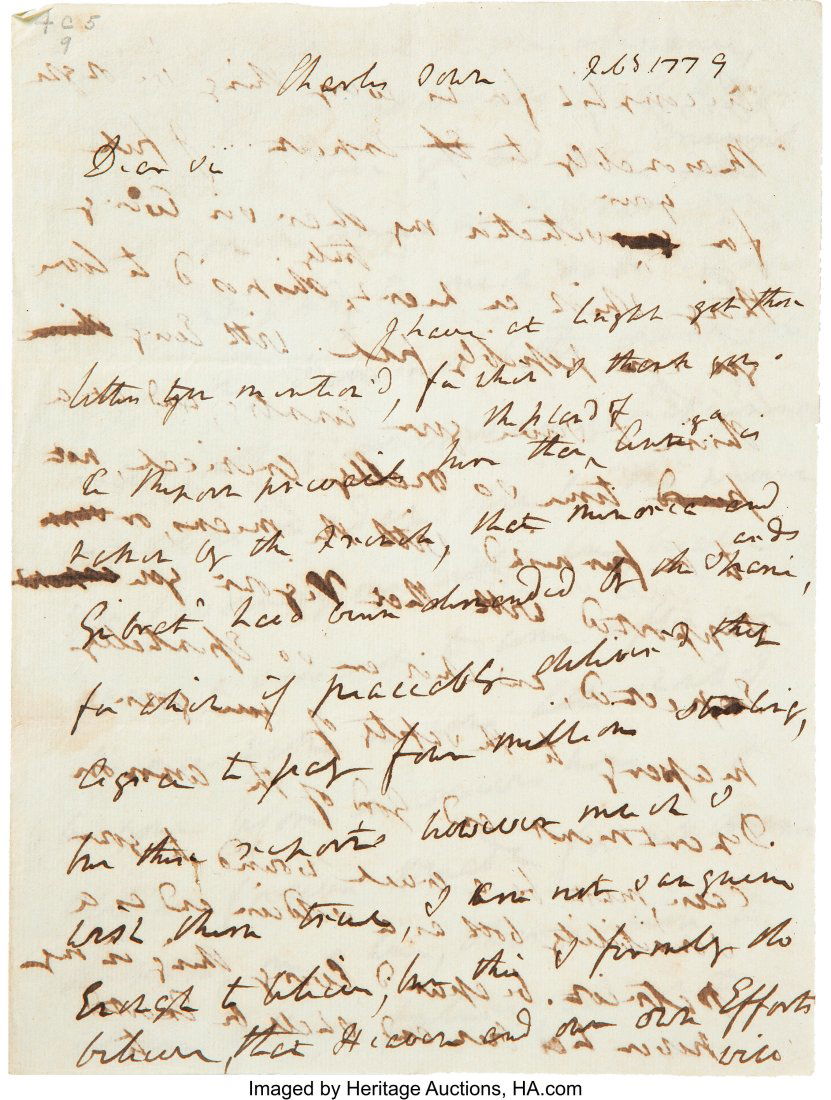 4 C 5
9
Charles Town Feb 5 1779
Dear Sir
I have at lenght got those
letters you mention'd, for which I thank you.
the Island of
A report prevails here that Antiga is
taken by the French, that Minorca and
Gibralt' had been demanded by the Spaniards,
for which if peaceably deliver'd they
agree to pay four million sterling,
but these reports however much I
wish them true, I am not sanguine
Enough to believe, but this I formely do
believe, that Heaven and our own Efforts
will
Imaged by Heritage Auctions, HA.com